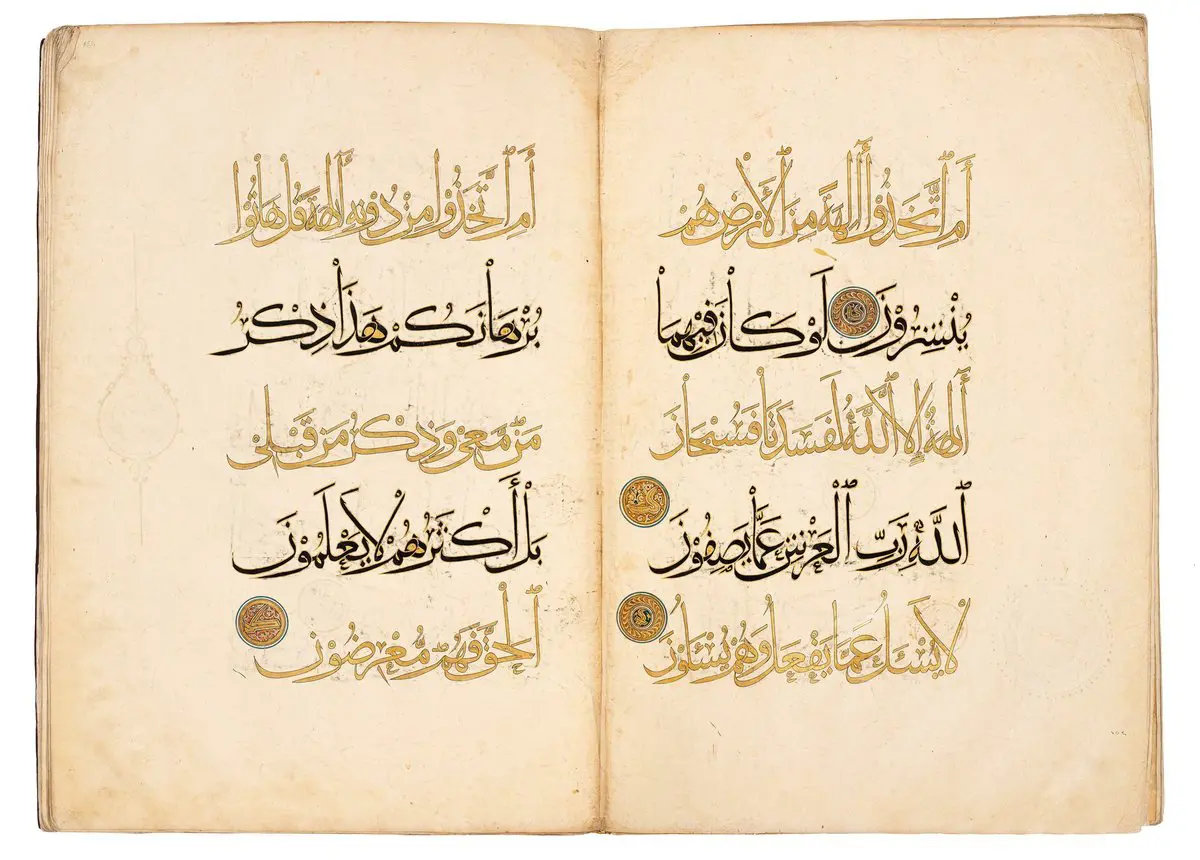 أَمِ ٱتَّخَذُوٓا۟ ءَالِهَةً مِنَ ٱلْأَرْضِ هُمْ
يُنْشِرُونَ لَوْ كَانَ فِيهِمَا
ءَالِهَةٌ إِلَّا ٱللَّهُ لَفَسَدَتَا فَسُبْحَانَ
ٱللَّهِ رَبِّ ٱلْعَرْشِ عَمَّا يَصِفُونَ
لَا يُسْـَٔلُ عَمَّا يَفْعَلُ وَهُمْ يُسْـَٔلُونَ
أَمِ ٱتَّخَذُوا مِنْ دُونِهِ ءَالِهَةً قُلْ هَاتُوا
بُرْهَانَكُمْ هَذَا ذِكْرُ
مَنْ مَعِيَ وَذِكْرُ مَنْ قَبْلِي
بَلْ أَكْثَرُهُمْ لَا يَعْلَمُونَ
ٱلْحَقَّ فَهُمْ مُعْرِضُونَ